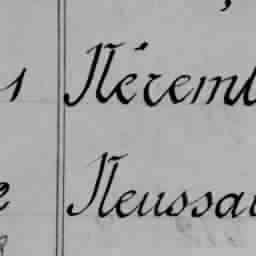 1 Néreml
e Neussai